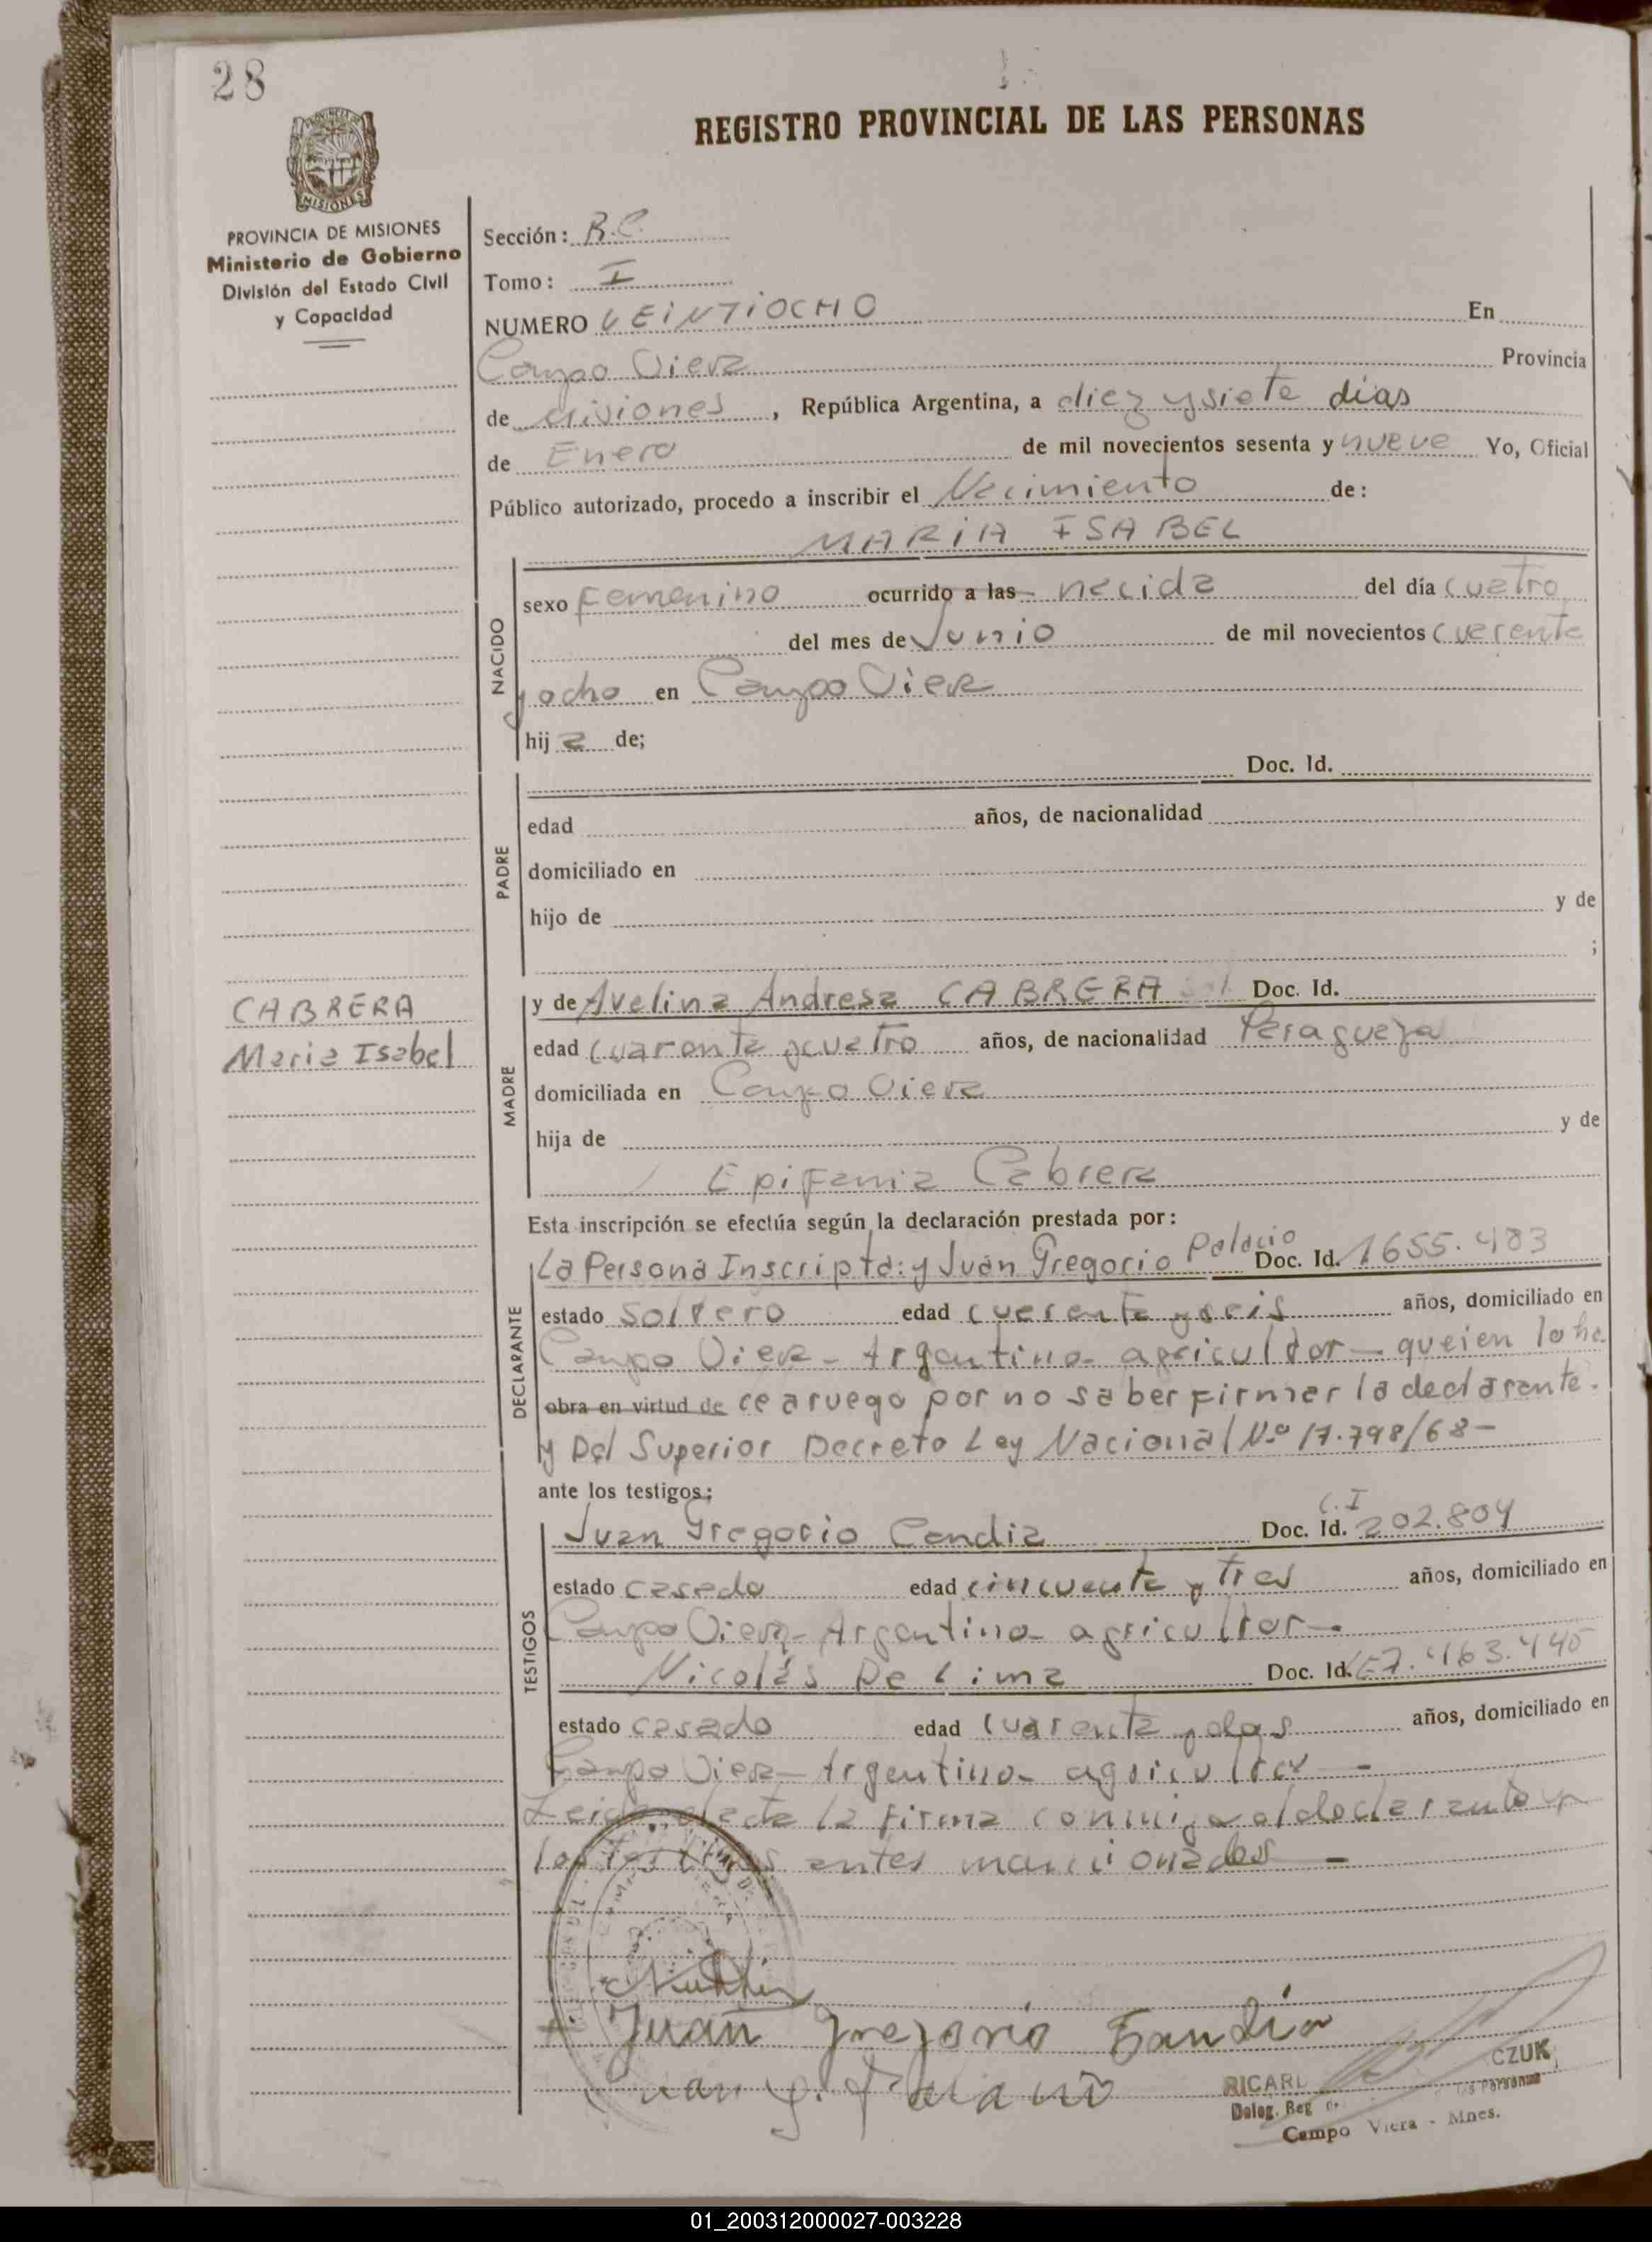 28
REGISTRO PROVINCIAL DE LAS PERSONAS
MISIONES
PROVINCIA DE MISIONES
Ministerio de Gobierno
División del Estado Civil
y Capacidad
Sección: R.C.
Tomo: I
NUMERO VEINTIOCHO En
Campo Viera Provincia
de Misiones, República Argentina, a diez y siete días
de Enero de mil novecientos sesenta y nueve Yo, Oficial
Público autorizado, procedo a inscribir el Nacimiento de:
MARIA ISABEL
NACIDO
sexo Femenino ocurrido a las nacida del día cuatro
del mes de Junio de mil novecientos cuarenta
y ocho en Campo Viera
hija de;
PADRE
Doc. Id.
edad años, de nacionalidad
domiciliado en
hijo de y de
;
CABRERA
Maria Isabel
MADRE
y de Avelina Andresa CABRERA Doc. Id.
edad cuarenta y cuatro años, de nacionalidad Paraguaya
domiciliada en Campo Viera
hija de y de
Epifania Cabrera
Esta inscripción se efectúa según la declaración prestada por:
DECLARANTE
La Persona Inscripta: y Juan Gregorio Palacio Doc. Id. 1655.483
estado Soltero edad cuarenta y seis años, domiciliado en
Campo Viera - Argentino - agricultor - queien lo ha
obra en virtud de ce a ruego por no saber firmar la declarante.
y Del Superior Decreto Ley Nacional Nº 17.798/68 -
ante los testigos;
TESTIGOS
Juan Gregorio Candia Doc. Id. C.I 202.804
estado casado edad cincuenta y tres años, domiciliado en
Campo Viera - Argentino - agricultor -
Nicolás De Lima Doc. Id. LE 7.463.445
estado casado edad cuarenta y dos años, domiciliado en
Campo Viera - Argentino - agricultor -
Leida el acta la firma conmigo el declarante y
los testigos antes mancionados -
Juan Gregorio Candia
Juan G. Palacio
RICAR CZUK
Deleg. Reg. de las Personas
Campo Viera - Mnes.
01_200312000027-003228